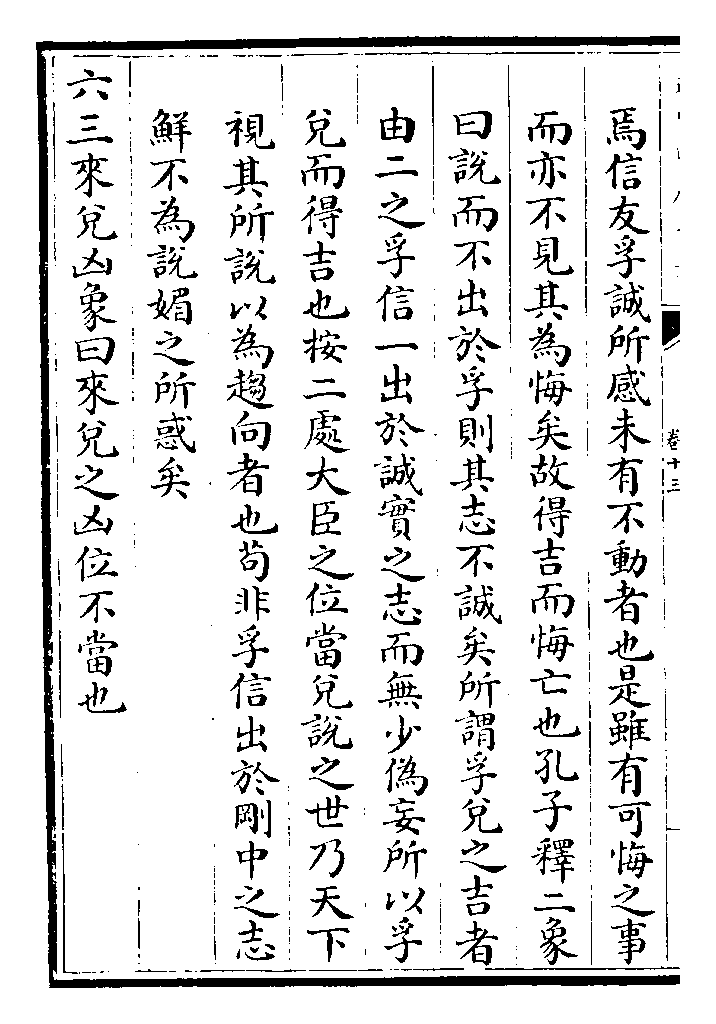 卷十三
焉信友孚誠所感未有不動者也是雖有可悔之事
而亦不見其為悔矣故得吉而悔亡也孔子釋二象
曰說而不出於孚則其志不誠矣所謂孚兌之吉者
由二之孚信一出於誠實之志而無少偽妄所以孚
兌而得吉也按二處大臣之位當兌說之世乃天下
視其所說以為趨向者也茍非孚信出於剛中之志
鮮不為說媚之所惑矣
六三來兌凶象曰來兌之凶位不當也